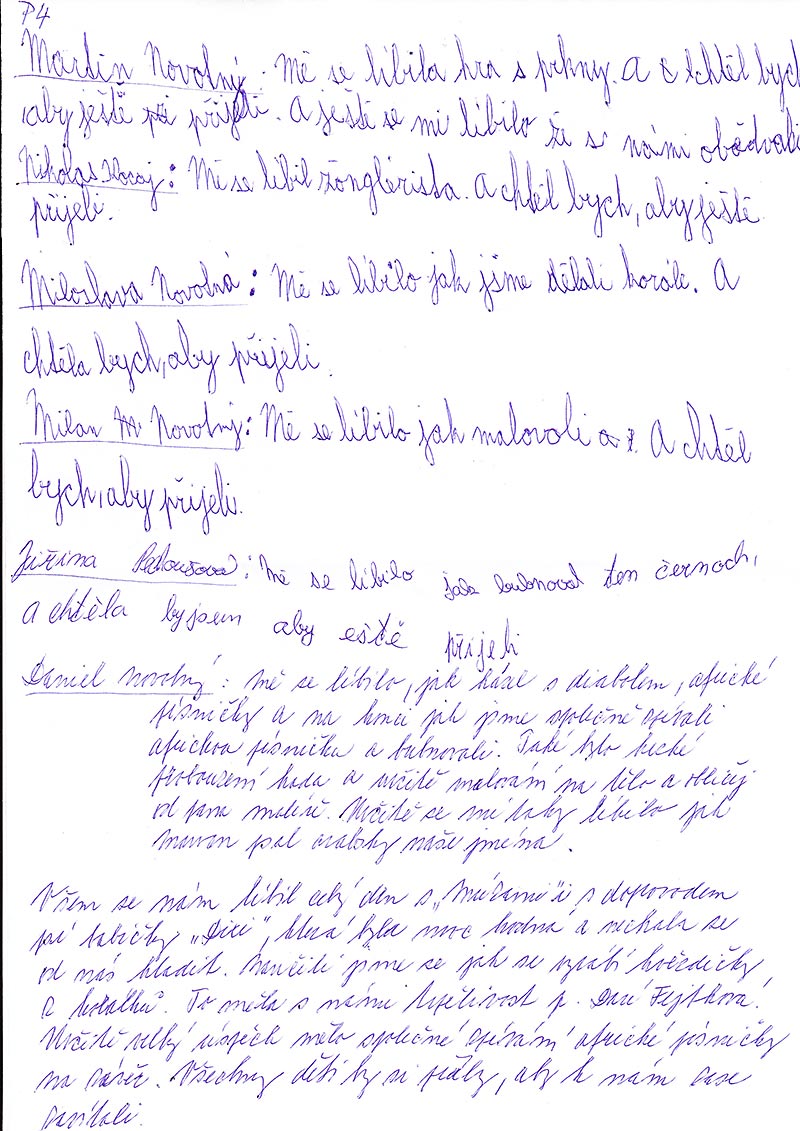 P4
Martin Novotný: Mě se líbila hra s prkny. A chtěl bych
aby ještě při přijeli. A ještě se mi líbilo že s námi obědvali
Nikolas: Mě se líbil žonglérista. A chtěl bych, aby ještě
přijeli.
Miloslava Novotná: Mě se líbílo jak jsme dělali korále. A
chtěla bych, aby přijeli.
Milan Novotný: Mě se líbilo jak malovali a. A chtěl
bych, aby přijeli.
Jiřina: Mě se líbilo jak bubnoval ten černoch,
a chtěla byjsem aby eště přijeli
Daniel Novotný: mě se líbilo, jak házel s diabolem, africké
písničky a na konci jak jsme společně zpívali
africkou písničku a bubnovali. Také bylo hecké
probouzení hada a určitě malování na tělo a obličej
od pana malíře. Určitě se mi taky líbilo jak
psal arabsky naše jména.
Všem se nám líbil celý den s „Múzami" i s doprovodem
psí babičky „Dixi", která byla moc hodná a nechala se
od nás hladit. Naučili jsme se jak se vyrábí hvězdičky
z korálků. To měla s námi trpělivost p. Fejtková.
Určitě velký úspěch mělo společné zpívání africké písničky
na závěr. Všechny děti by si přály, aby k nám zase
zavítali.